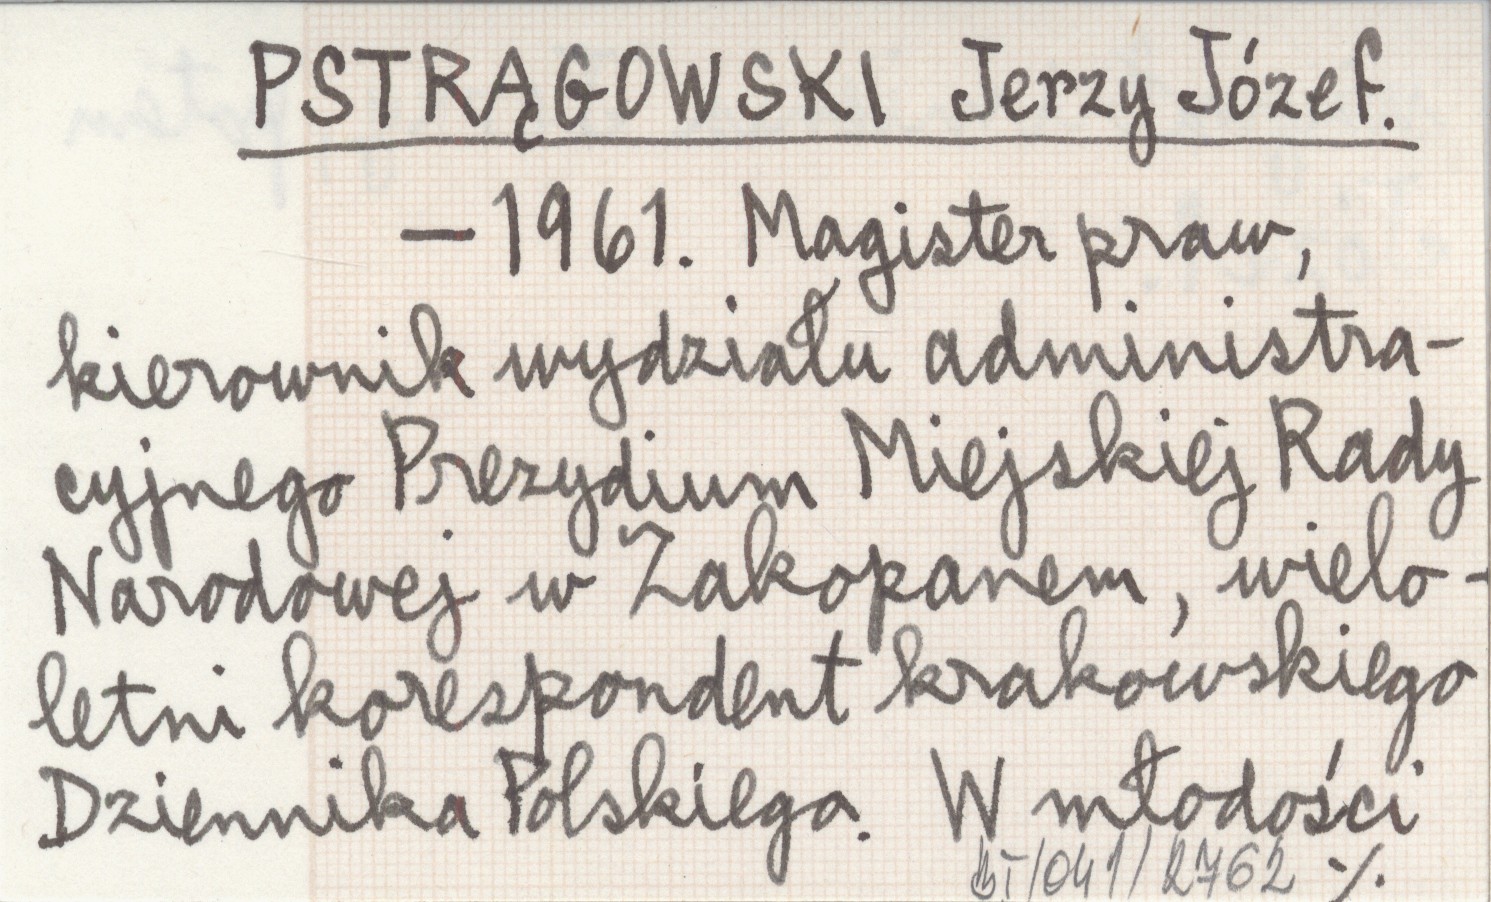 PSTRĄGOWSKI Jerzy Józef.
— 1961. Magister praw,
kierownik wydziału administra-
cyjnego Prezydium Miejskiej Rady
Narodowej w Zakopanem, wielo-
letni korespondent krakowskiego
Dziennika Polskiego. W młodości
BT/041/2762 ./.